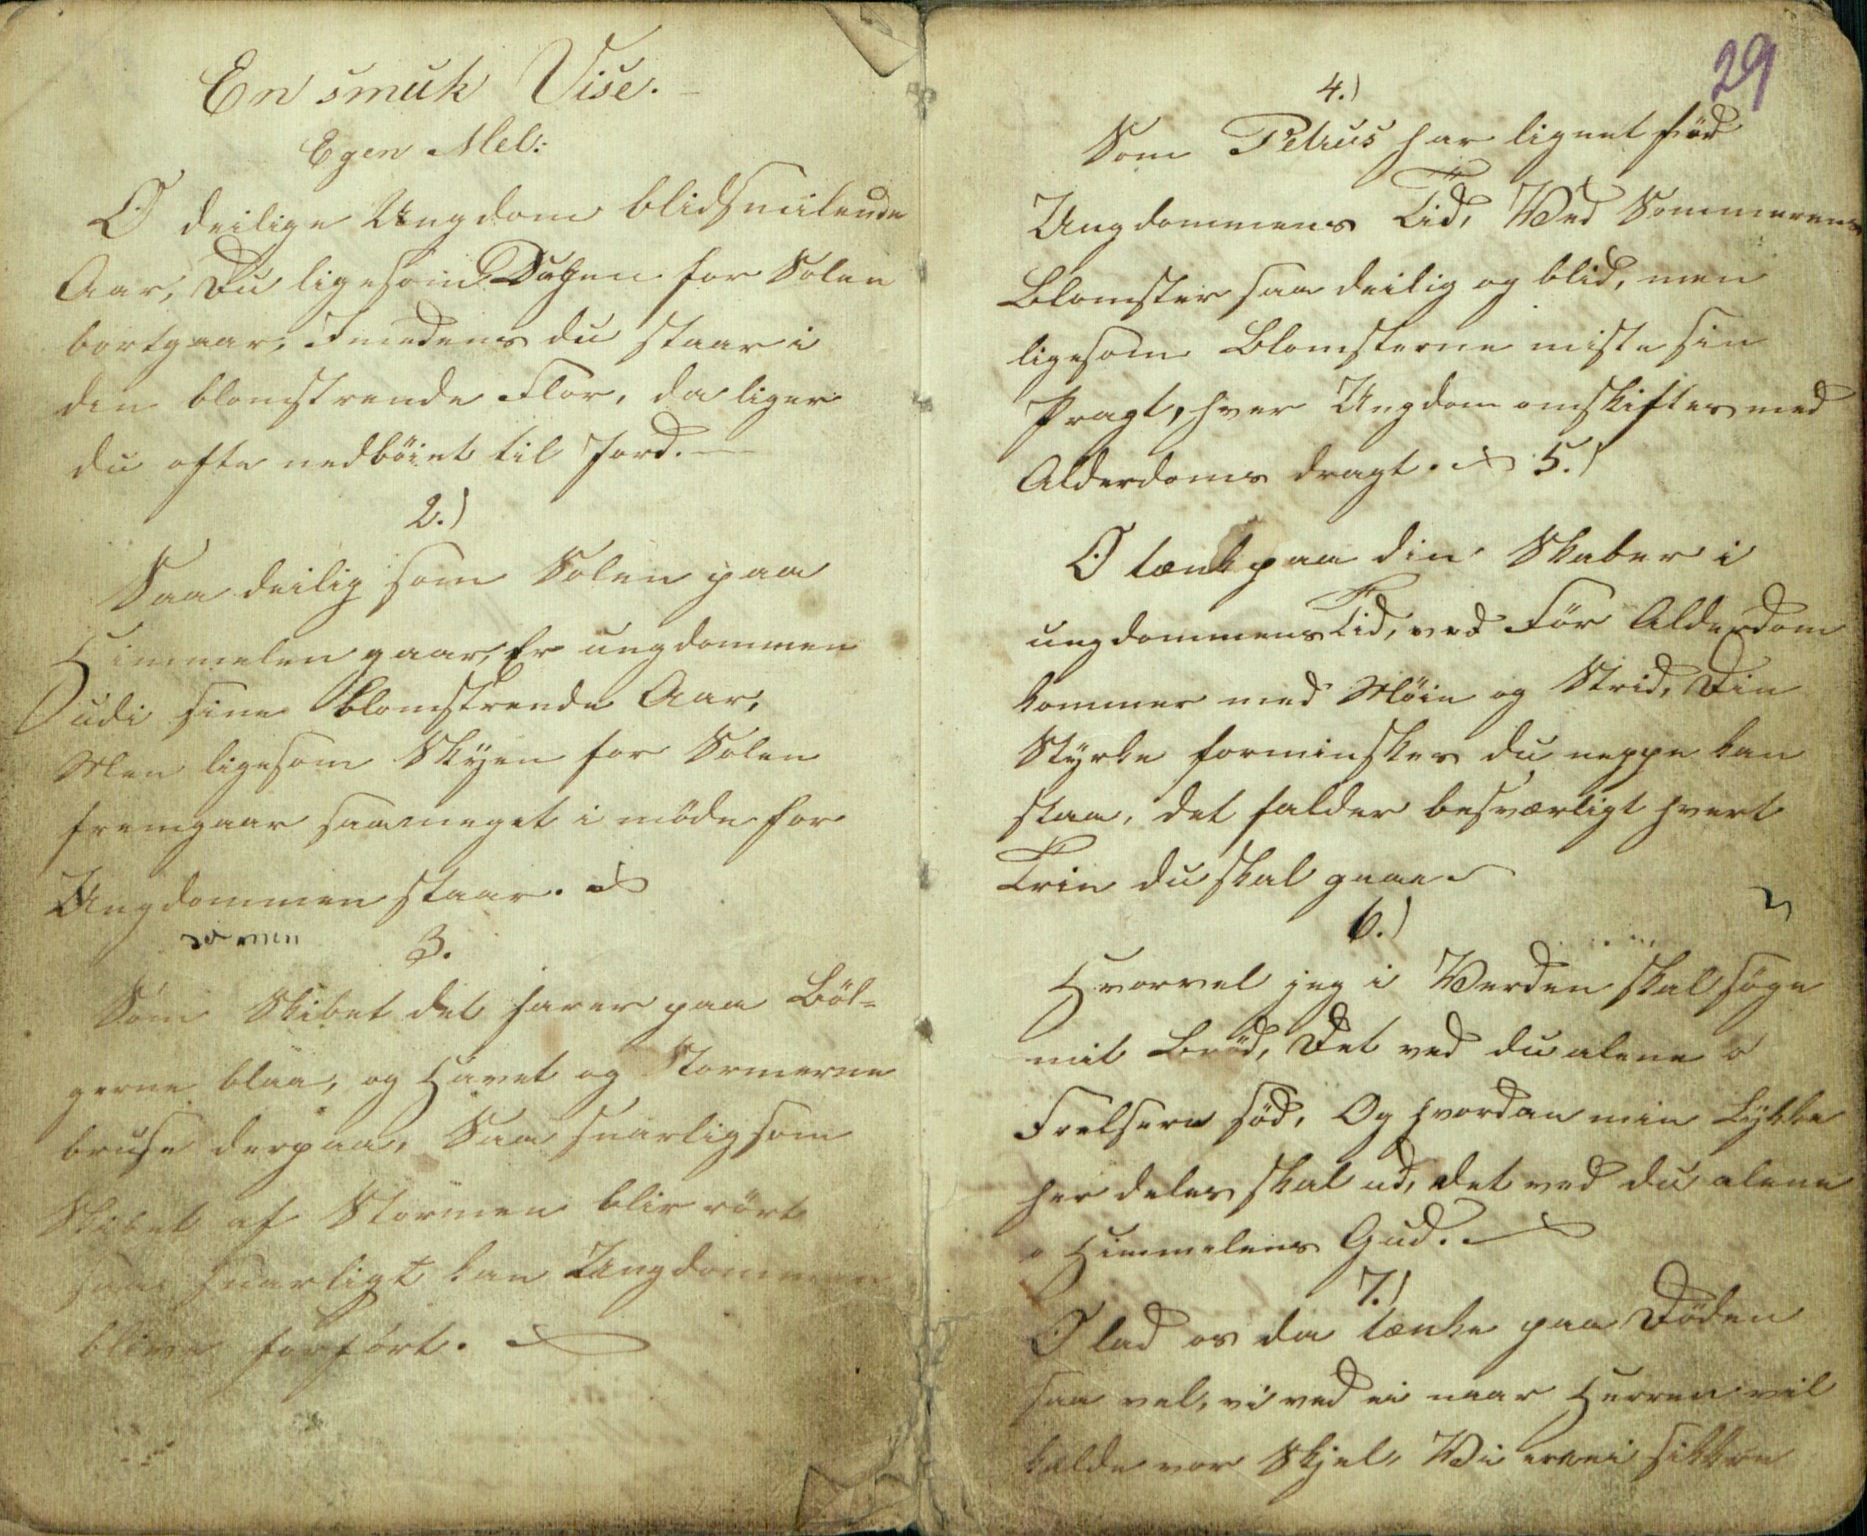 En smuk Vise.
Egen Mel:
O deilige Ungdom blidsmilende
Aar, Du ligesom Duggen for Solen
bortgaar, Imedens du staar i
den blomstrende Flor, da liger
du ofte nedböiet til Jord.
2.)
Saa deilig som Solen paa
Himmelen gaar, Er ungdommen
udi sine blomstrende Aar,
Men ligesom Skÿen for Solen
fremgaar saameget i möde for
Ungdommen staar.
3.
Som Skibet det farer paa Böl-
gerne blaa, og Havet og Stormerne
bruse derpaa, Saa snarlig som
Skibet af Stormen blir rört
saa snarligt kan Ungdommen
blive forfört.
29
4.)
Som Petrus har lignet förd
Ungdommens Tid, Ved Sommerens
Blomster saa deilig og blid, men
ligesom Blomsterne miste sin
Pragt, hver Ungdom omskiftes med
Alderdoms dragt. 5.)
O tænk paa din Skaber i
ungdommens Tid, ved För Alderdom
kommer med Möie og Strid, Din
Stÿrke forminskes du neppe kan
staa, det falder besværligt hvert
Trin du skal gaae
6.)
Hvorvel jeg i Verden skal söge
mit Bröd, Det ved du alene o
Frelsere söd, Og hvordan min Lÿkke
her deles skal ud, det ved du alene
o Himmelens Gud.
7.)
O lad os da tænke paa Döden
saa vel, vi ved ei naar Herren vil
kalde vor Skjel, Vi er ei sikkre